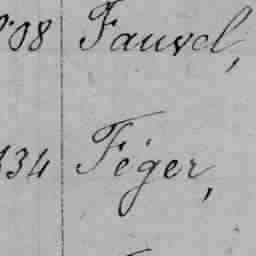 08 Fauvel,
334 Féger,